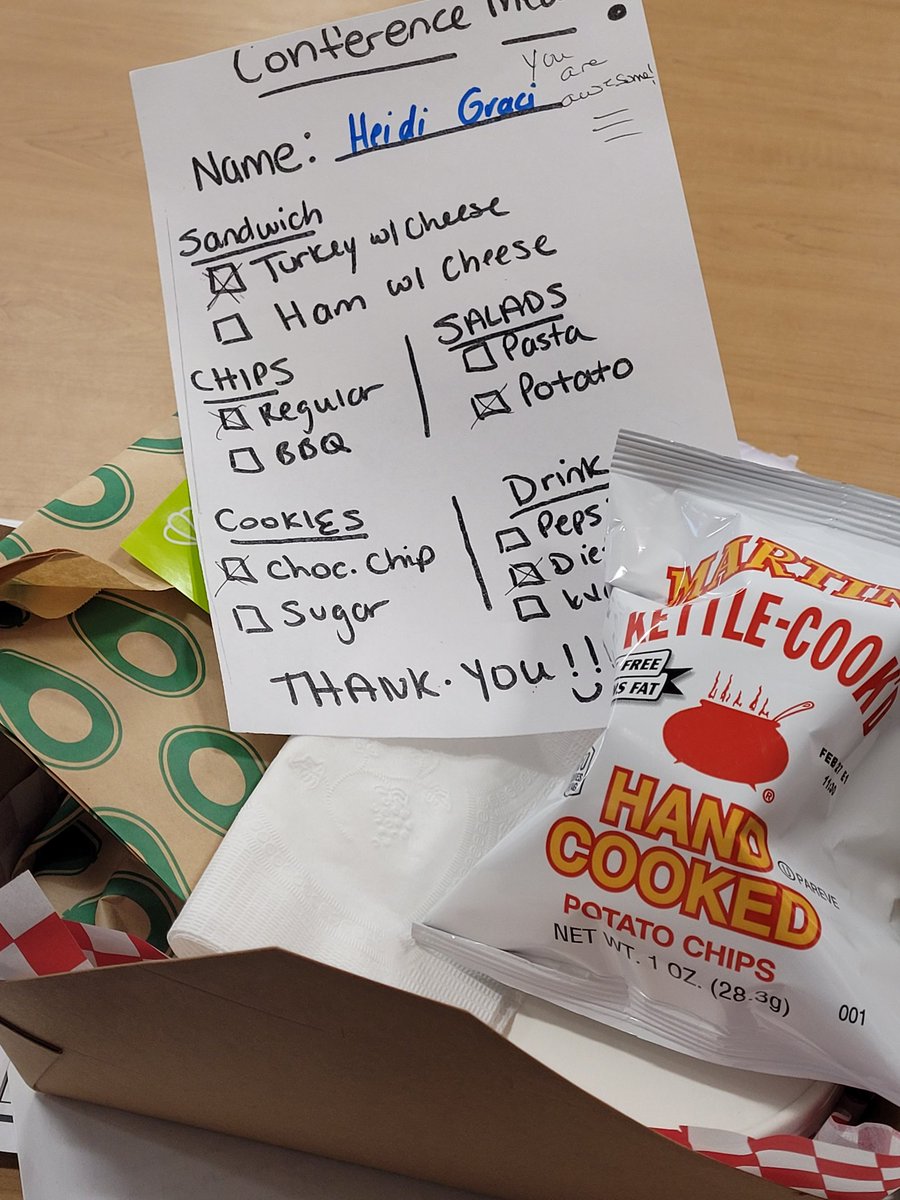 Conference
You
are
awesome!
Name: Heidi Graci
Sandwich
Turkey w/ Cheese
Ham w/ Cheese
CHIPS
Regular
BBQ
SALADS
Pasta
Potato
Cookies
Choc. Chip
Sugar
Drink
Peps
Die
THANK-YOU!!
MARTIN
KETTLE-COOK'D
FREE
S FAT
FEB 27 61
HAND
COOKED
U PAREVE
POTATO CHIPS
NET WT. 1 OZ. (28.3g)
001